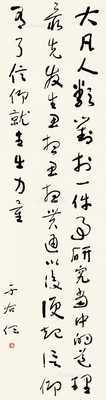 大凡人類對於一件事研究當中的道理
最先發生思想思想貫通以後便起信仰
有了信仰就生出力量
于右任